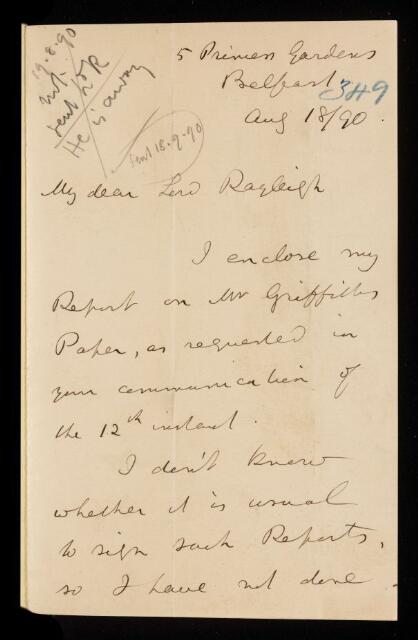 19.8.90
not
sent to R
He is away
Sent 18.9.90
5 Princess Gardens
Belfast
349
Aug 18/90.
My dear Lord Rayleigh
I enclose my
Report on Mr Griffiths
Paper, as requested in
your communication of
the 12th instant.
I don't know
whether it is usual
to sign such Reports,
so I have not done